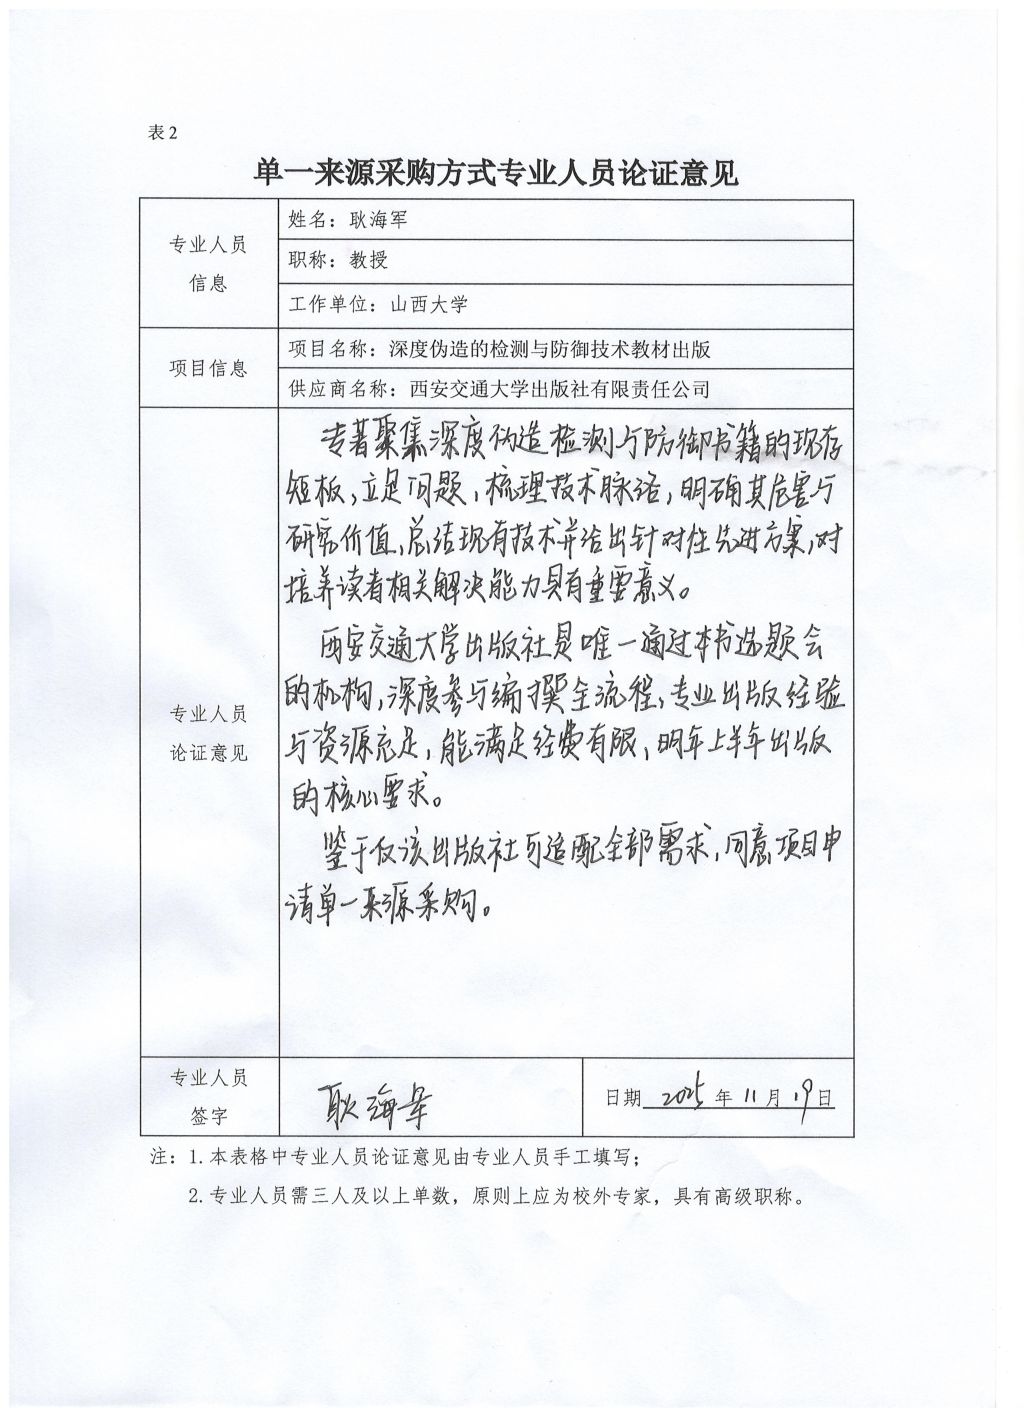 表2
单一来源采购方式专业人员论证意见
专业人员
信息
姓名：耿海军
职称：教授
工作单位：山西大学
项目信息
项目名称：深度伪造的检测与防御技术教材出版
供应商名称：西安交通大学出版社有限责任公司
专业人员
论证意见
专著聚集深度伪造检测与防御书籍的现存
短板，立足问题，梳理技术脉络，明确其危害与
研究价值，总结现有技术并给出针对性先进方案，对
培养读者相关解决能力具有重要意义。
西安交通大学出版社是唯一通过本书选题会
的机构，深度参与编撰全流程，专业出版经验
与资源充足，能满足经费有限，明年上半年出版
的核心要求。
鉴于仅该出版社可适配全部需求，同意项目申
请单一来源采购。
专业人员
签字
耿海军
日期 2025 年 11 月 19 日
注：1.本表格中专业人员论证意见由专业人员手工填写；
2.专业人员需三人及以上单数，原则上应为校外专家，具有高级职称。